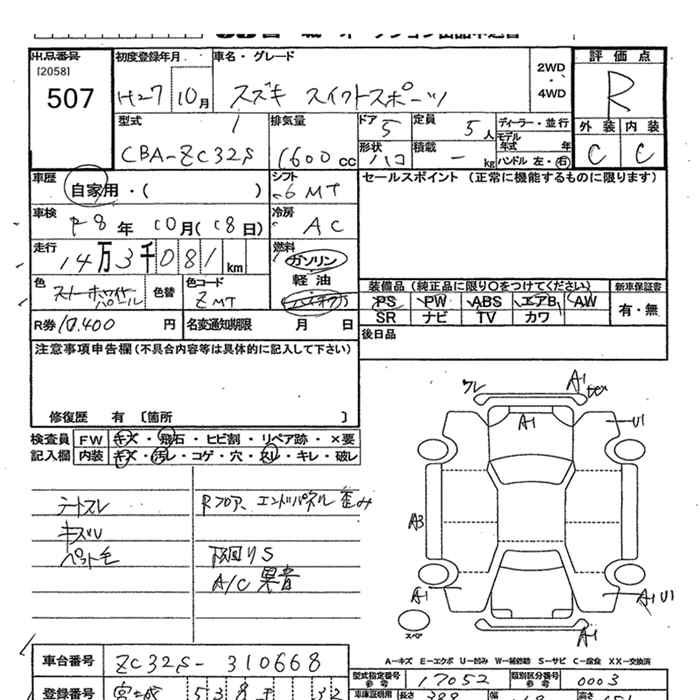 出品番号 初度登録年月 車名・グレード
[2058]
507 H27 10月 スズキ スイフトスポーツ
2WD
・
4WD
評価点
R
外装 内装
C C
型式 排気量 ドア 5 定員 5人 ディーラー・並行
CBA-ZC32S 1600cc
形状 ハコ 積載 - kg
モデル年式 年
ハンドル 左・右
車歴 自家用・( )
シフト 6MT
セールスポイント (正常に機能するものに限ります)
車検 R8年 10月(18日) 冷房 AC
走行 14万3千081km 燃料 ガソリン
軽油
ハイオク
色 色替 色コード ZMT
装備品 (純正品に限り○をつけてください) 新車保証書
PS PW ABS エアB AW 有・無
SR ナビ TV カワ
R券 10,400円 名変通知期限 月 日 後日品
注意事項申告欄(不具合内容等は具体的に記入して下さい)
修復歴 有 〔箇所 〕
検査員 FW キズ・飛石・ヒビ割・リペア跡・×要
記入欄 内装 キズ・汚レ・コゲ・穴・スリ・キレ・破レ
Rフロア、エンドパネル歪み
キズU
ペット毛
下回りS
A/C異音
A1
A1 U1
A3
A1 A1U1
スペア
A1
A-キズ E-エクボ U-凹み W-補修跡 S-サビ C-腐食 XX-交換済
車台番号 ZC32S-310668
型式指定番号 17052 類別区分番号 0003
参考 参考
登録番号 宮城
車庫証明用 長さ 388 幅 高さ